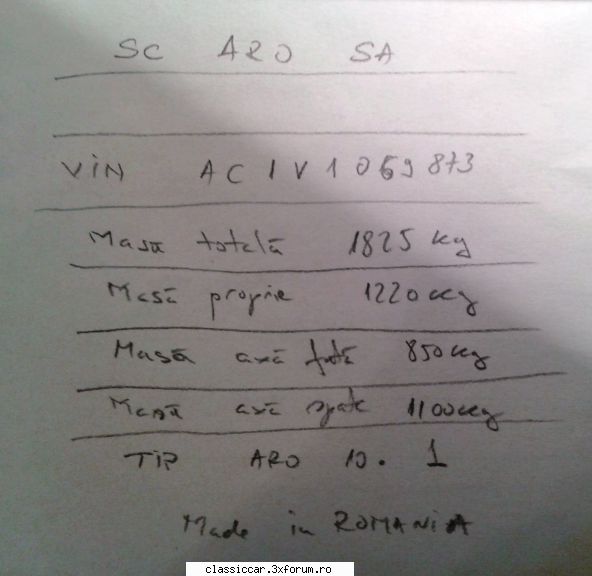 SC ARO SA
VIN AC1V1069873
Masă totală 1825 kg
Masă proprie 1220 kg
Masă axă față 850 kg
Masă axă spate 1100 kg
TIP ARO 10.1
Made in ROMANIA
classiccar.3xforum.ro